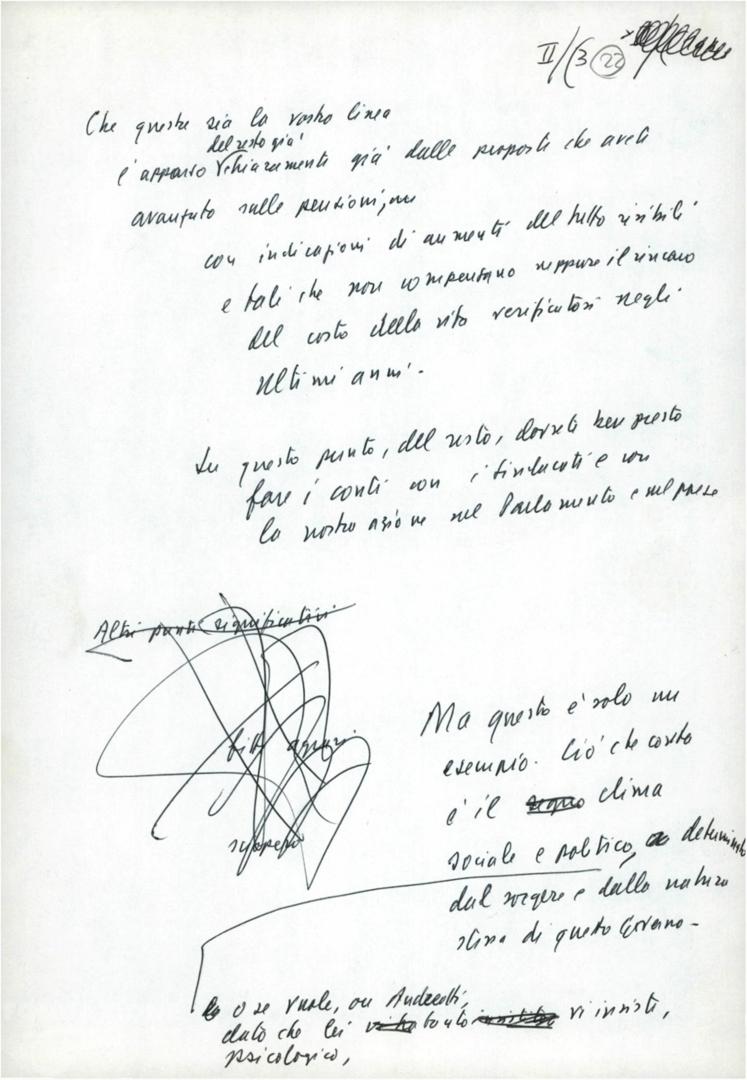 II/(3 (22)
Che questa sia la vostra linea
del resto già
è apparso chiaramente già dalle proposte che avete
avanzato sulle pensioni,
con indicazioni di aumenti del tutto risibili
e tali che non compensano neppure il rincaro
del costo della vita verificatosi negli
ultimi anni.
Su questo punto, del resto, dovrete ben presto
fare i conti con i sindacati e con
la nostra azione nel Parlamento e nel paese
Altri punti significativi
fitti agrari
Ma questo è solo un
esempio. Ciò che conta
è il segno clima
sociale e politico, determinato
dal sorgere e dalla natura
stessa di questo Governo -
o se vuole, on Andreotti,
dato che lei tanto vi insiste,
psicologico,